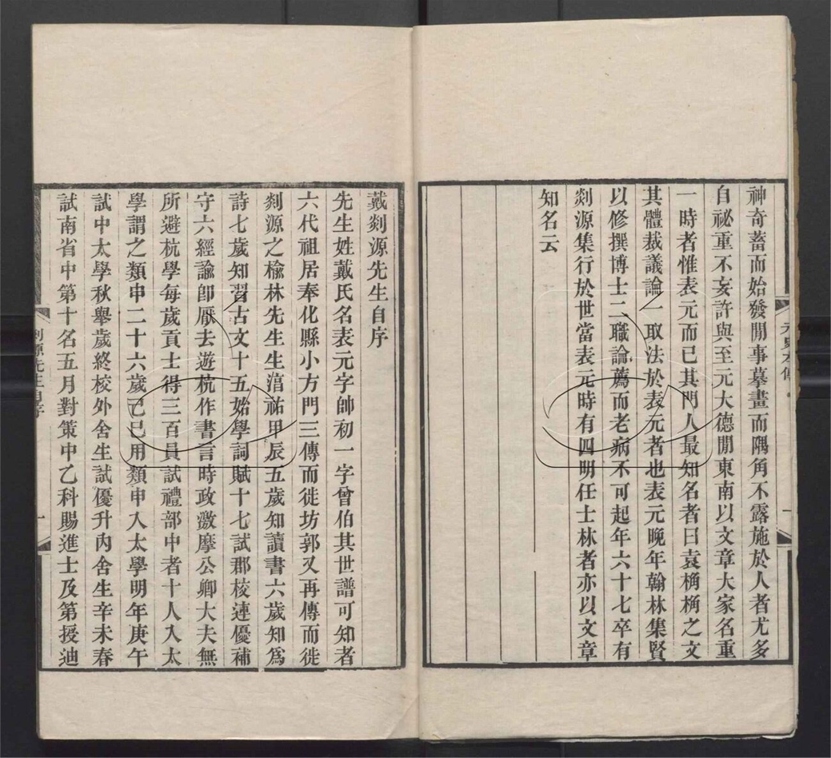 神奇蓄而始發閒事摹畫而隅角不露施於人者尤多
自祕重不妄許與至元大德閒東南以文章大家名重
一時者惟表元而已其門人最知名者曰袁桷桷之文
其體裁議論一取法於表元者也表元晚年翰林集賢
以修撰博士二職論薦而老病不可起年六十七卒有
剡源集行於世當表元時有四明任士林者亦以文章
知名云
戴剡源先生自序
先生姓戴氏名表元字帥初一字曾伯其世譜可知者
六代祖居奉化縣小方門三傳而徙坊郭又再傳而徙
剡源之榆林先生生淯祐甲辰五歲知讀書六歲知為
詩七歲知習古文十五始學詞賦十七試郡校連優補
守六經諭卽厭去遊杭作書言時政激摩公卿大夫無
所避杭學每歲貢士得三百員試禮部中者十人入太
學謂之類申二十六歲己巳用類申入太學明年庚午
試中太學秋舉歲終校外舍生試優升內舍生辛未春
試南省中第十名五月對策中乙科賜進士及第授迪
剡源先生自序
一